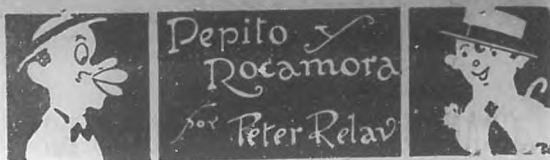 Pepito y
Rocamora
por Peter Relav